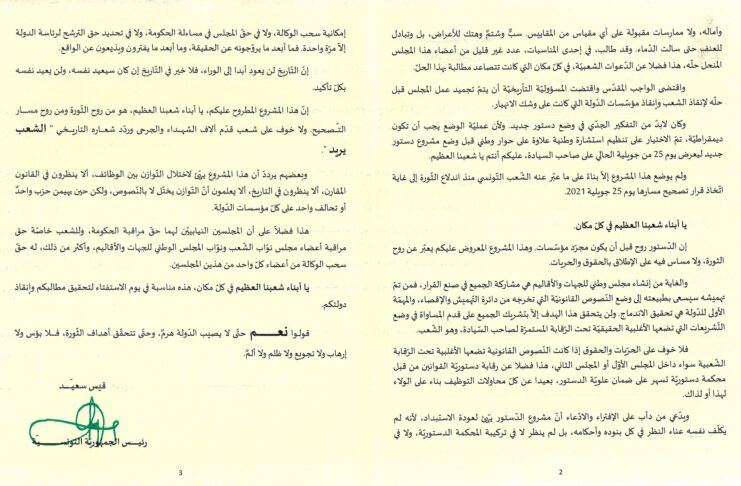 وآماله، ولا ممارسات مقبولة على أي مقياس من المقاييس. سبٌّ وشتمٌ وهتك للأعراض، بل وتبادل
للعنف حتى سالت الدّماء. وقد طالب، في إحدى المناسبات، عدد غير قليل من أعضاء هذا المجلس
المنحل حلّه، هذا فضلا عن الدّعوات الشعبيّة، في كلّ مكان التي كانت تتصاعد مطالبة بهذا الحلّ.
واقتضى الواجب المقدّس واقتضت المسؤوليّة التأريخيّة أن يتمّ تجميد عمل المجلس قبل
حلّه لإنقاذ الشعب وإنقاذ مؤسّسات الدّولة التي كانت على وشك الانهيار.
وكان لابدّ من التفكير الجدّي في وضع دستور جديد. ولأن عمليّة الوضع يجب أن تكون
ديمقراطيّة، تمّ الاختيار على تنظيم استشارة وطنية علاوة على حوار وطني قبل وضع مشروع دستور
جديد ليعرض يوم 25 من جويلية الحالي على صاحب السيادة، عليكم أنتم يا شعبنا العظيم.
ولم يوضع هذا المشروع إلاّ بناءً على ما عبّر عنه الشّعب التّونسي منذ اندلاع الثّورة إلى غاية
اتّخاذ قرار تصحيح مسارها يوم 25 جويلية 2021.
يا أبناء شعبنا العظيم في كلّ مكان.
إن الدّستور روح قبل أن يكون مجرّد مؤسّسات. وهذا المشروع المعروض عليكم يعبّر عن روح
الثورة، ولا مساس فيه على الإطلاق بالحقوق والحريات.
والغاية من إنشاء مجلس وطني للجهات والأقاليم هي مشاركة الجميع في صنع القرار، فمن تمّ
تهميشه سيسعى بطبيعته إلى وضع النّصوص القانونيّة التي تخرجه من دائرة التّهميش والإقصاء، والمهمّة
الأولى للدّولة هي تحقيق الاندماج. ولن يتحقق هذا الهدف إلاّ بتشريك الجميع على قدم المساواة في وضع
التّشريعات التي تضعها الأغلبية الحقيقيّة تحت الرّقابة المستمرّة لصاحب السّيادة، وهو الشّعب.
فلا خوف على الحرّيات والحقوق إذا كانت النّصوص القانونية تضعها الأغلبية تحت الرّقابة
الشّعبية سواء داخل المجلس الأوّل أو المجلس الثاني، هذا فضلا عن رقابة دستوريّة القوانين من قبل
محكمة دستوريّة تسهر على ضمان علويّة الدستور، بعيدا عن كلّ محاولات التوظيف بناء على الولاء
لهذا أو لذاك.
ويدّعي من دأب على الإفتراء والادّعاء أنّ مشروع الدّستور يهيّئ لعودة الاستبداد، لأنه لم
يكلّف نفسه عناء النظر في كل بنوده وأحكامه، بل لم ينظر لا في تركيبة المحكمة الدستوريّة، ولا في
2
إمكانية سحب الوكالة، ولا في حقّ المجلس في مساءلة الحكومة، ولا في تحديد حق الترشح لرئاسة الدولة
إلاّ مرّة واحدة. فما أبعد ما يروّجونه عن الحقيقة، وما أبعد ما يفترون ويذيعون عن الواقع.
إنّ التّاريخ لن يعود أبدا إلى الوراء، فلا خير في التّاريخ إن كان سيعيد نفسه، ولن يعيد نفسه
بكلّ تأكيد.
إنّ هذا المشروع المطروح عليكم، يا أبناء شعبنا العظيم، هو من روح الثّورة ومن روح مسار
التّصحيح. ولا خوف على شعب قدّم آلاف الشّهداء والجرحى وردّد شعاره التاريخي " الشعب
يريد ".
وبعضهم يردّد أن هذا المشروع يهيّئ لاختلال التّوازن بين الوظائف، ألا ينظرون في القانون
المقارن، ألا ينظرون في التاريخ، ألا يعلمون أنّ التّوازن يختلّ لا بالنّصوص، ولكن حين يهيمن حزب واحدٌ
أو تحالف واحد على كلّ مؤسسات الدّولة.
هذا فضلاً على أن المجلسين النيابيّين لهما حقّ مراقبة الحكومة، وللشعب خاصّة حق
مراقبة أعضاء مجلس نوّاب الشّعب ونوّاب المجلس الوطني للجهات والأقاليم، وأكثر من ذلك، له حقّ
سحب الوكالة من أعضاء كلّ واحد من هذين المجلسين.
يا أبناء شعبنا العظيم في كلّ مكان، هذه مناسبة في يوم الاستفتاء لتحقيق مطالبكم وإنقاذ
دولتكم.
قولوا نعـم حتّى لا يصيب الدّولة هرمٌ، وحتّى تتحقّق أهداف الثّورة، فلا بؤس ولا
إرهاب ولا تجويع ولا ظلم ولا ألمٌ.
قيس سعيّـد
رئيس الجمهوريّة التونسيّـة
3